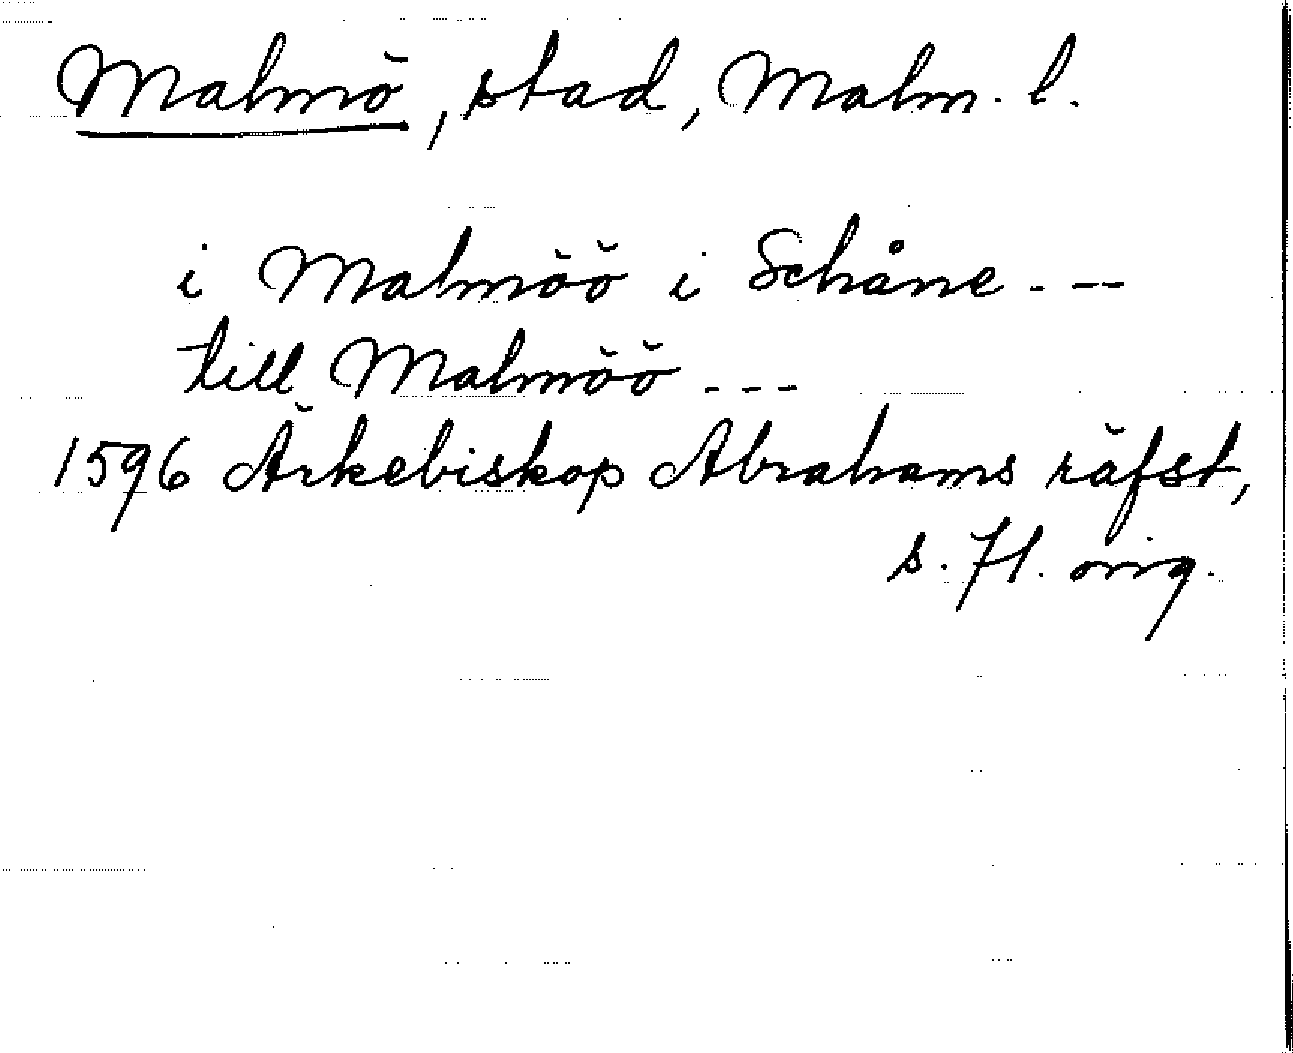 Malmö, stad, Malm. l.
i Malmöö i Schåne - --
till Malmöö - - -
1596 Ärkebiskop Abrahams räfst,
s. 71. orig.